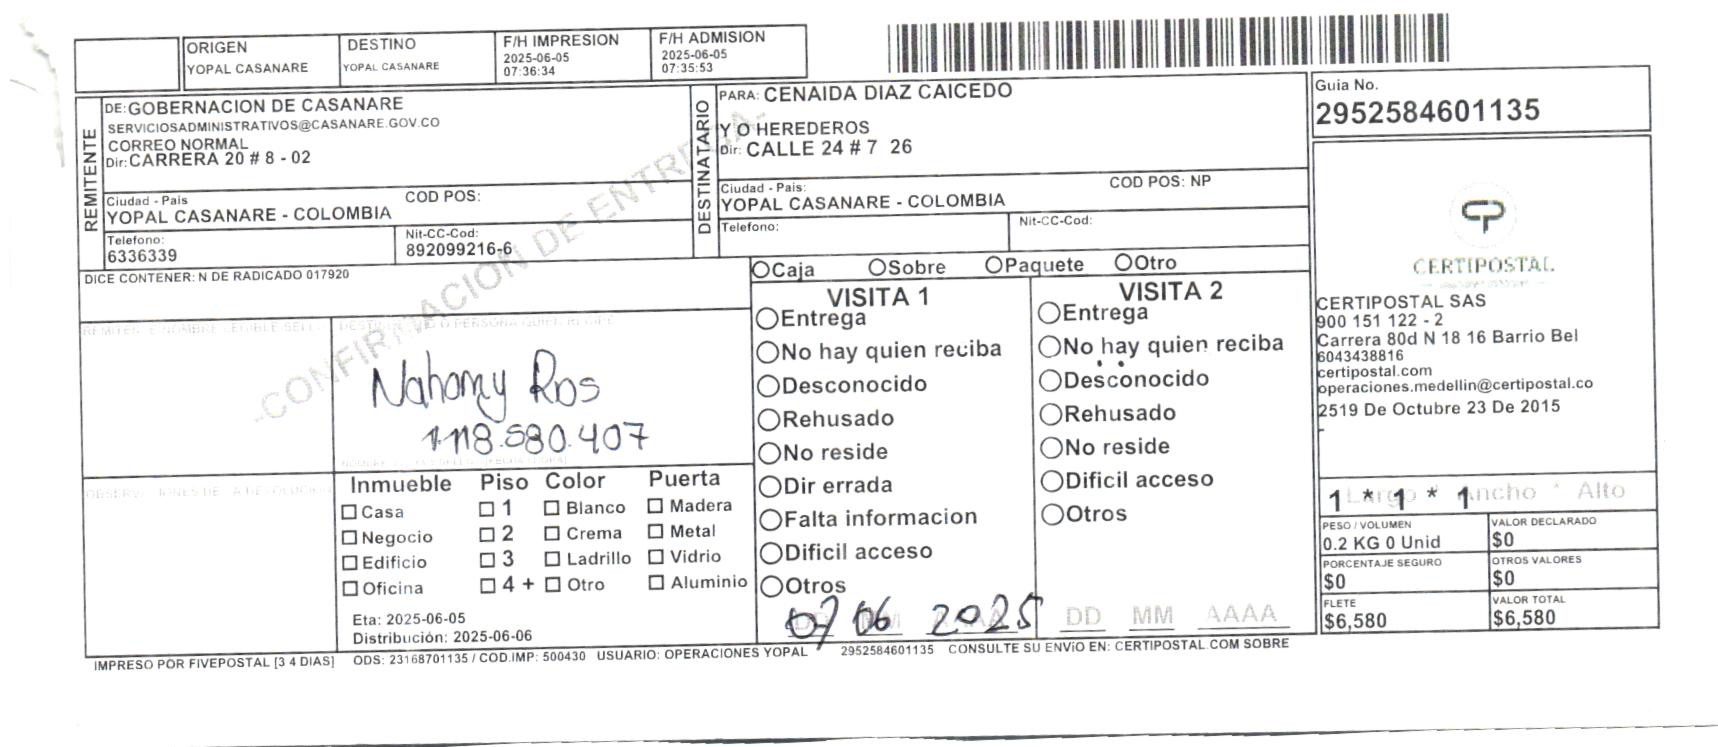 ORIGEN
YOPAL CASANARE
DESTINO
YOPAL CASANARE
F/H IMPRESION
2025-06-05
07:36:34
F/H ADMISION
2025-06-05
07:35:53
REMITENTE
DE: GOBERNACION DE CASANARE
SERVICIOSADMINISTRATIVOS@CASANARE.GOV.CO
CORREO NORMAL
Dir: CARRERA 20 # 8 - 02
Ciudad - Pais
YOPAL CASANARE - COLOMBIA
COD POS:
Telefono:
6336339
Nit-CC-Cod:
892099216-6
DESTINATARIO
PARA: CENAIDA DIAZ CAICEDO
Y O HEREDEROS
Dir: CALLE 24 # 7 26
Ciudad - Pais:
YOPAL CASANARE - COLOMBIA
COD POS: NP
Telefono:
Nit-CC-Cod:
Guia No.
2952584601135
CERTIPOSTAL
CERTIPOSTAL SAS
900 151 122 - 2
Carrera 80d N 18 16 Barrio Bel
6043438816
certipostal.com
operaciones.medellin@certipostal.co
2519 De Octubre 23 De 2015
-
DICE CONTENER: N DE RADICADO 017920
-CONFIRMACION DE ENTREGA-
Nahomy Rios
1.118.580.407
Inmueble
Casa
Negocio
Edificio
Oficina
Piso
1
2
3
4 +
Color
Blanco
Crema
Ladrillo
Otro
Puerta
Madera
Metal
Vidrio
Aluminio
Eta: 2025-06-05
Distribución: 2025-06-06
Caja Sobre Paquete Otro
VISITA 1
Entrega
No hay quien reciba
Desconocido
Rehusado
No reside
Dir errada
Falta informacion
Dificil acceso
Otros
07 06 2025
VISITA 2
Entrega
No hay quien reciba
Desconocido
Rehusado
No reside
Dificil acceso
Otros
DD MM AAAA
1 * 1 * 1
Largo * Ancho * Alto
PESO / VOLUMEN
0.2 KG 0 Unid
VALOR DECLARADO
$0
PORCENTAJE SEGURO
$0
OTROS VALORES
$0
FLETE
$6,580
VALOR TOTAL
$6,580
IMPRESO POR FIVEPOSTAL [3 4 DIAS] ODS: 23168701135 / COD.IMP: 500430 USUARIO: OPERACIONES YOPAL 2952584601135 CONSULTE SU ENVíO EN: CERTIPOSTAL.COM SOBRE